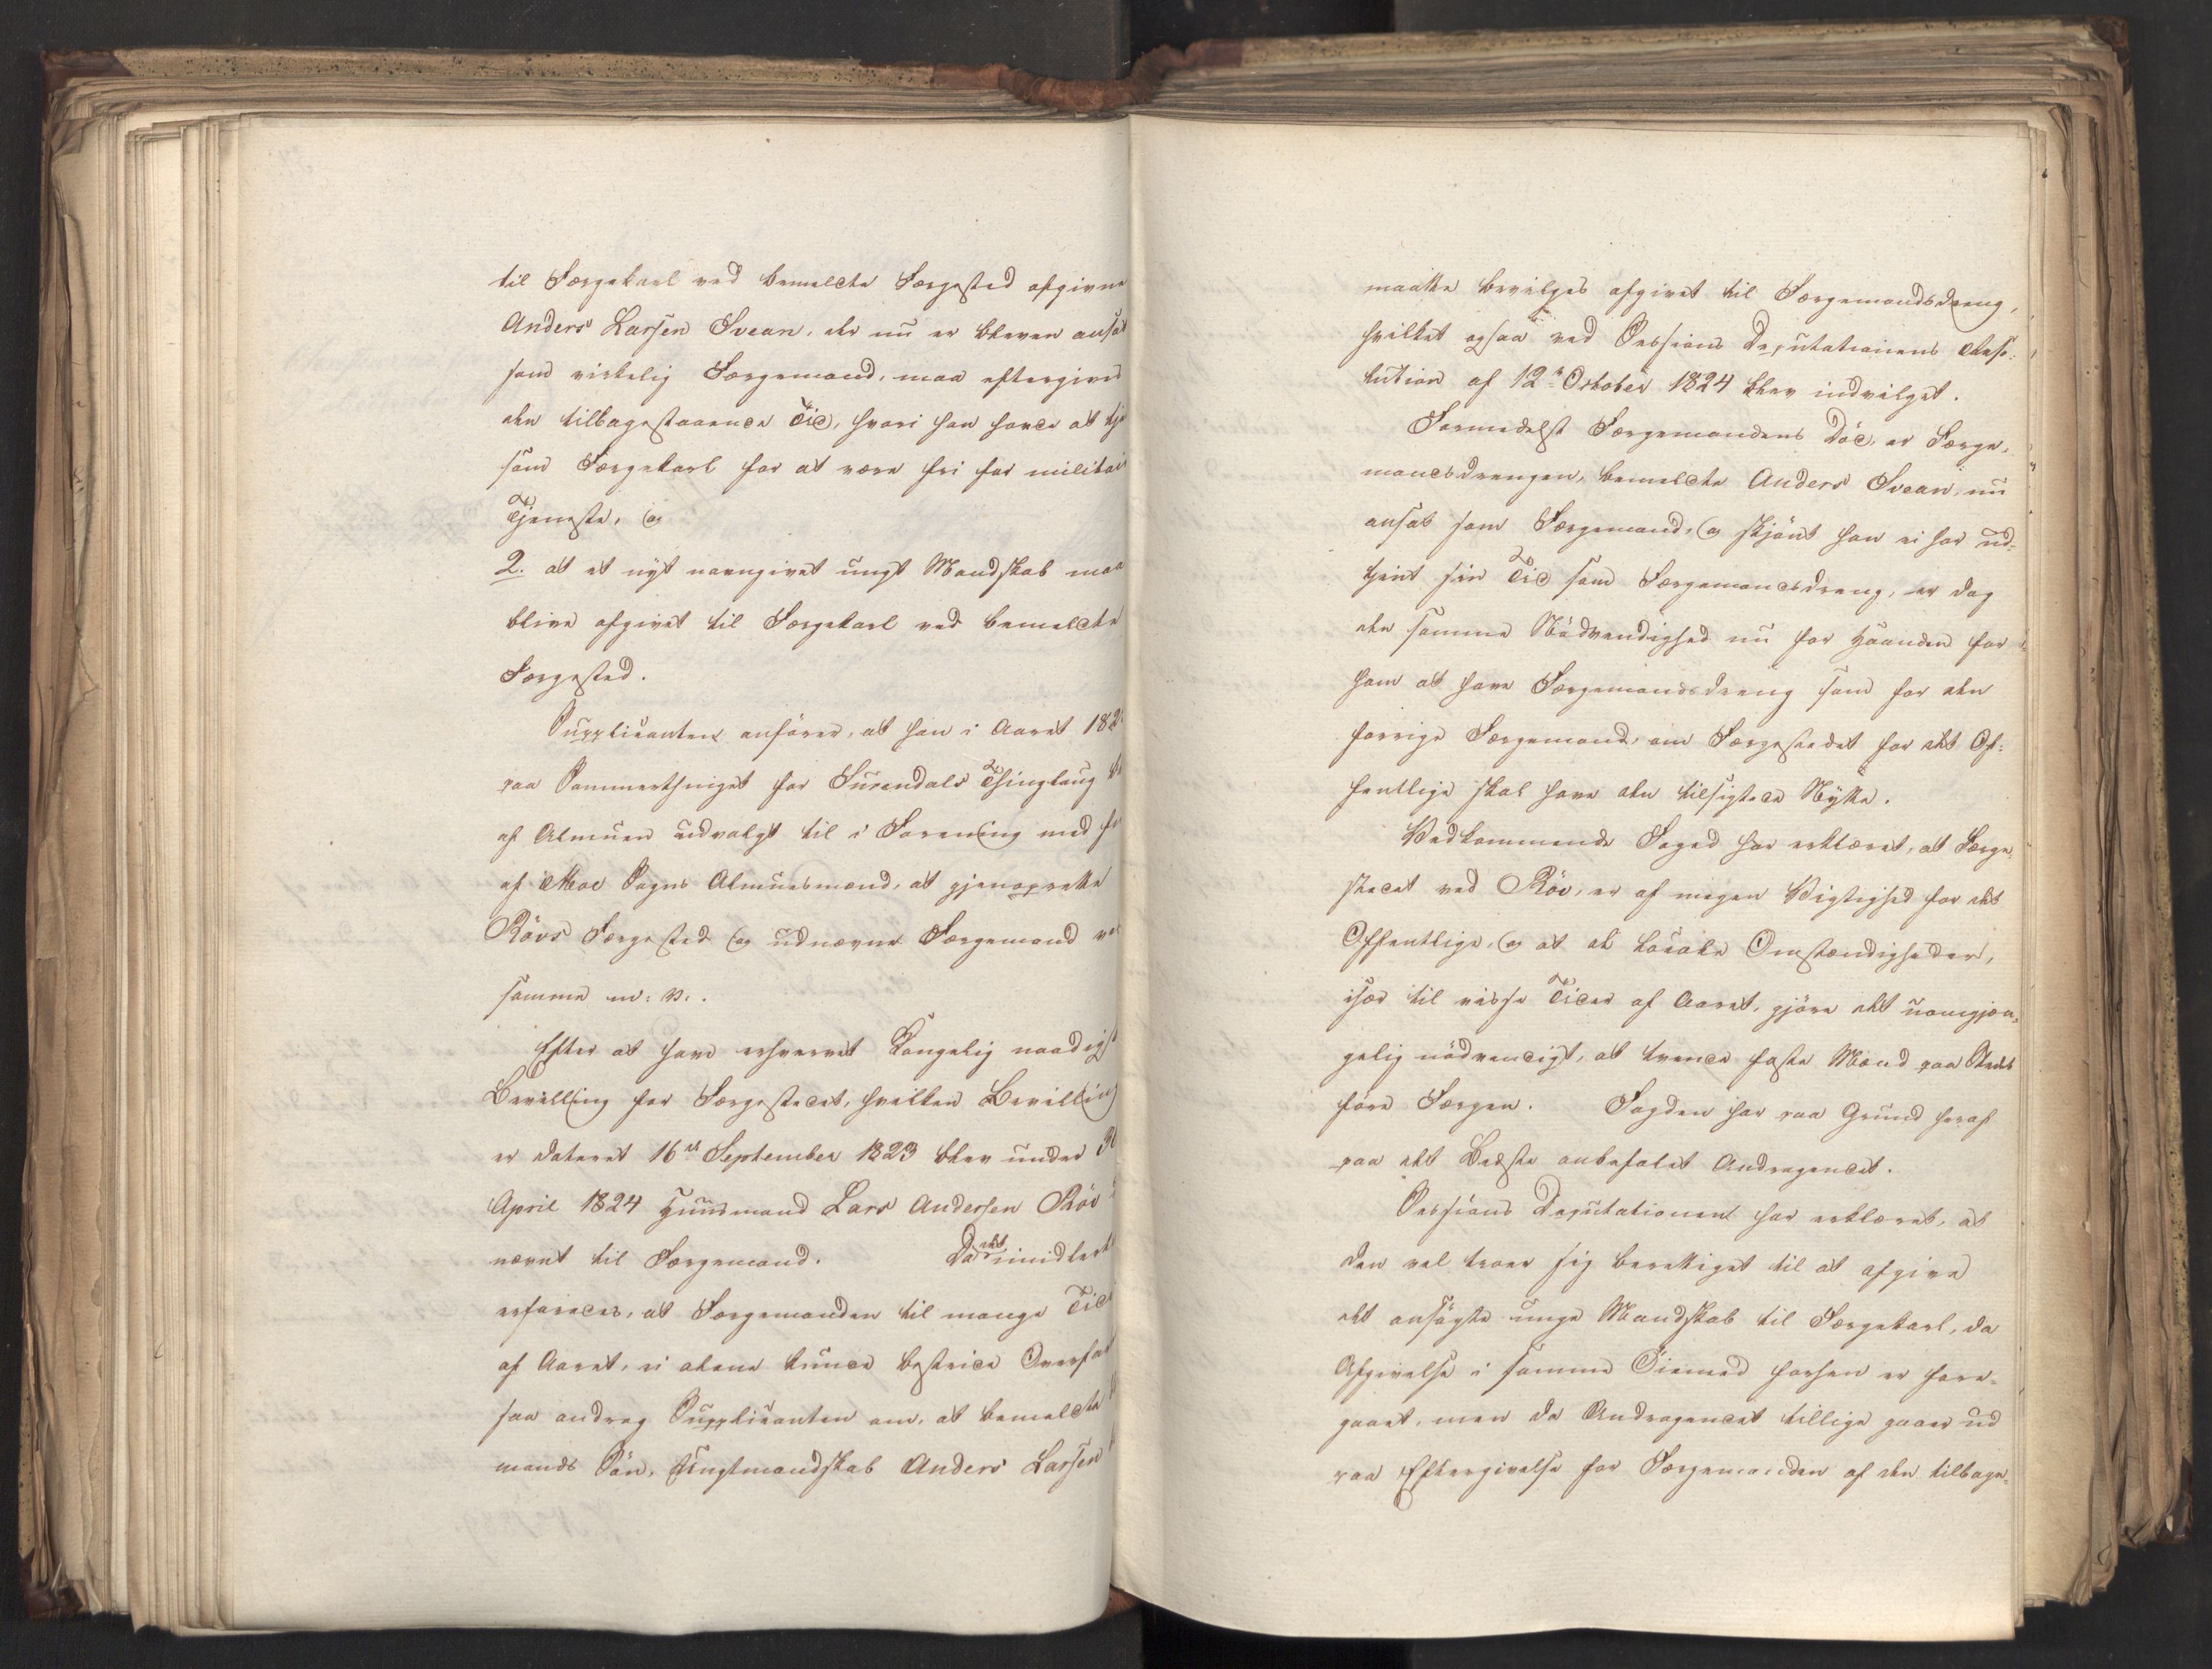 til Færgekarl ved bemeldte Færgested afgivne
Anders Larsen Svean, der nu er bleven ansat
som virkelig Færgemand, maa eftergives
den tilbagestaaende Tid, hvori han havde at
som Færgekarl for at være fri for militair
Tjeneste, og
2. at et nyt navngivet ungt Mandskab maa
blive afgivet til Færgekarl ved bemeldte
Færgested.
Supplicanten anfører, at han i Aaret
paa Sommerthinget for Surendals Thinglaug
af Almuen udvalgt til i Forening med
af Moe Sogns Almuesmænd, at gjenoprette
Røvs Færgested og udnævne Færgemand ved
samme m: v:.
Efter at have erhvervet Kongelig naadigst
Bevilling for Færgestedet, hvilken Bevilling
er dateret 16de September 1823 blev under
April 1824 Huusmand Lars Andersen Røv
nævnt til Færgemand. Da det imidlertid
erfaredes, at Færgemanden til mange Tider
af Aaret, ei alene kunde bestride Overfarten
saa androg Supplicanten om, at bemeldte
mands Søn, Ungtmandskab Anders Larsen
maatte bevilges afgivet til Færgemandsdreng,
hvilket ogsaa ved Sessions Deputationens Reso-
lution af 12te October 1824 blev indvilget.
Formedelst Færgemandens Död, er Færge-
mandsdrengen, bemeldte Anders Svean, nu
ansat som Færgemand, og skjönt han ei har ud-
tjent sin Tid som Færgemandsdreng, er dog
den samme Nödvendighed nu for Haanden for
ham at have Færgemandsdreng som for den
forrige Færgemand, om Færgestedet for det Of-
fentlige skal have den tilsigtede Nytte.
Vedkommende Foged har erklæret, at Færge-
stedet ved Röv, er af megen Vigtighed for det
Offentlige, og at de locale Omstændigheder,
især til visse Tider af Aaret, gjöre det uomgjæn-
gelig nödvendigt, at tvende faste Mænd paa Stedet
före Færgen. Fogden har paa Grund heraf
paa det Bedste anbefalet Andragendet.
Sessions Deputationen har erklæret, at
den vel troer sig berettiget til at afgive
det ansögte unge Mandskab til Færgekarl, da
Afgivelse i samme Öiemed forhen er fore-
gaaet, men da Andragendet tillige gaaer ud
paa Eftergivelse for Færgemanden af den tilbage-